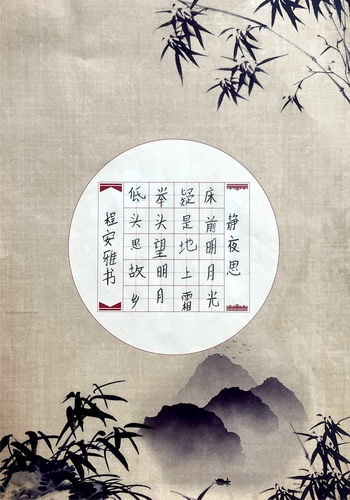 静夜思
床前明月光
疑是地上霜
举头望明月
低头思故乡
程安雅书